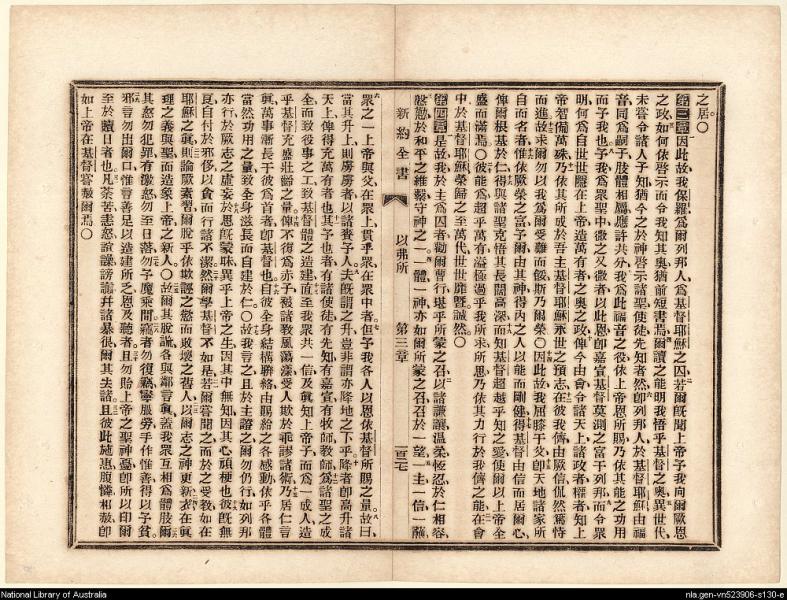 之居〇
第三章因此故我保羅爲爾列邦人爲基督耶穌之囚若爾旣聞上帝予我向爾厥恩
之政如何依啓示而令我知其奧猶前短書焉爾讀之能明我悟乎基督之奧異世代
未嘗令諸人子知猶今之於神啓示諸聖使徒先知者然卽列邦人於基督耶穌由福
音同爲嗣子肢體相屬應許共分我爲此福音之役依上帝恩所賜乃依其能之功用
而予我也予我爲衆聖中微之又微者以此恩卽嘉宣基督莫測之富于列邦而令衆
明何爲自世世隱在上帝造萬有者之奧之政俾今由會令諸天上諸政者權者知上
帝智備萬殊乃依其所成於吾主基督耶穌永世之預志在彼我儕由厥信侃然篤恃
而進故求爾勿以我爲爾受難而餒斯乃爾榮〇因此故我屈膝于父卽天地諸家所
自而名者惟依厥榮之富予爾由其神得內之人以能而剛健得基督由信而居爾心
俾爾根基於仁得與諸聖克悟其長闊高深而知基督超越乎知之愛使爾以上帝全
盛而滿焉〇彼能爲超乎萬有溢極過乎我所求所思乃依其力行於我儕之能在會
中於基督耶穌榮歸之至萬代世世靡曁誠然〇
第四章是故我於主爲囚者勸爾曹行堪乎所蒙之召以諸謙讓溫柔恆忍於仁相容
慇懃於和平之維繫守神之一一體一神亦如爾所蒙之召召於一望一主一信一蘸
新約全書 以弗所 第三章
衆之一上帝與父在衆上貫乎衆在衆中者但予我各人以恩依基督所賜之量故曰
當其升上則虜虜者以諸賚予人夫旣謂之升豈非謂亦降地之下乎降者卽高升諸
天上俾得充萬有者也其予也者有諸使徒有先知有嘉宣有牧師教師爲諸聖之成
全而致役事之工致基督體之造建直至我衆共一信及眞知上帝子而爲一成人造
乎基督充盛壯齡之量俾不復爲赤子被諸教風蕩漾受人欺於乖謬諸術乃居仁言
眞萬事漸長于彼爲首者卽基督也自彼全身結構聯絡由賜給之各感動依乎各體
當然功用之量致全身滋長而自建於仁〇故我言之且於主證之爾勿仍行如列邦
亦行於厥志之虛妄於思旣蒙昧異乎上帝之生因其中無知因其心頑梗也彼旣無
自付於邪侈以貪而行諸不潔然爾學基督不如是若爾嘗聞之而於之受教如在
耶穌之眞則論厥素習爾脫乎依欺誕之慾而敗壞之舊人以爾志之神更新衣在眞
理之義與聖而造象上帝之新人〇故爾其脫譌各與鄰言眞蓋我衆互相爲體肢爾
其怒勿犯罪有激怒勿至日落勿予魔乘間竊者勿復竊寧服勞手作惟善得以予貧
邪言勿出爾口惟言善足以造建所之恩及聽者且勿貽上帝之聖神憂卽所以印爾
至於贖日者也凡荼苦恚怒諠譟謗讟幷諸暴很爾其去諸且彼此施惠腹憐相赦卽
如上帝在基督嘗赦爾焉〇
National Library of Australia
nla.gen-vn523906-s130-e